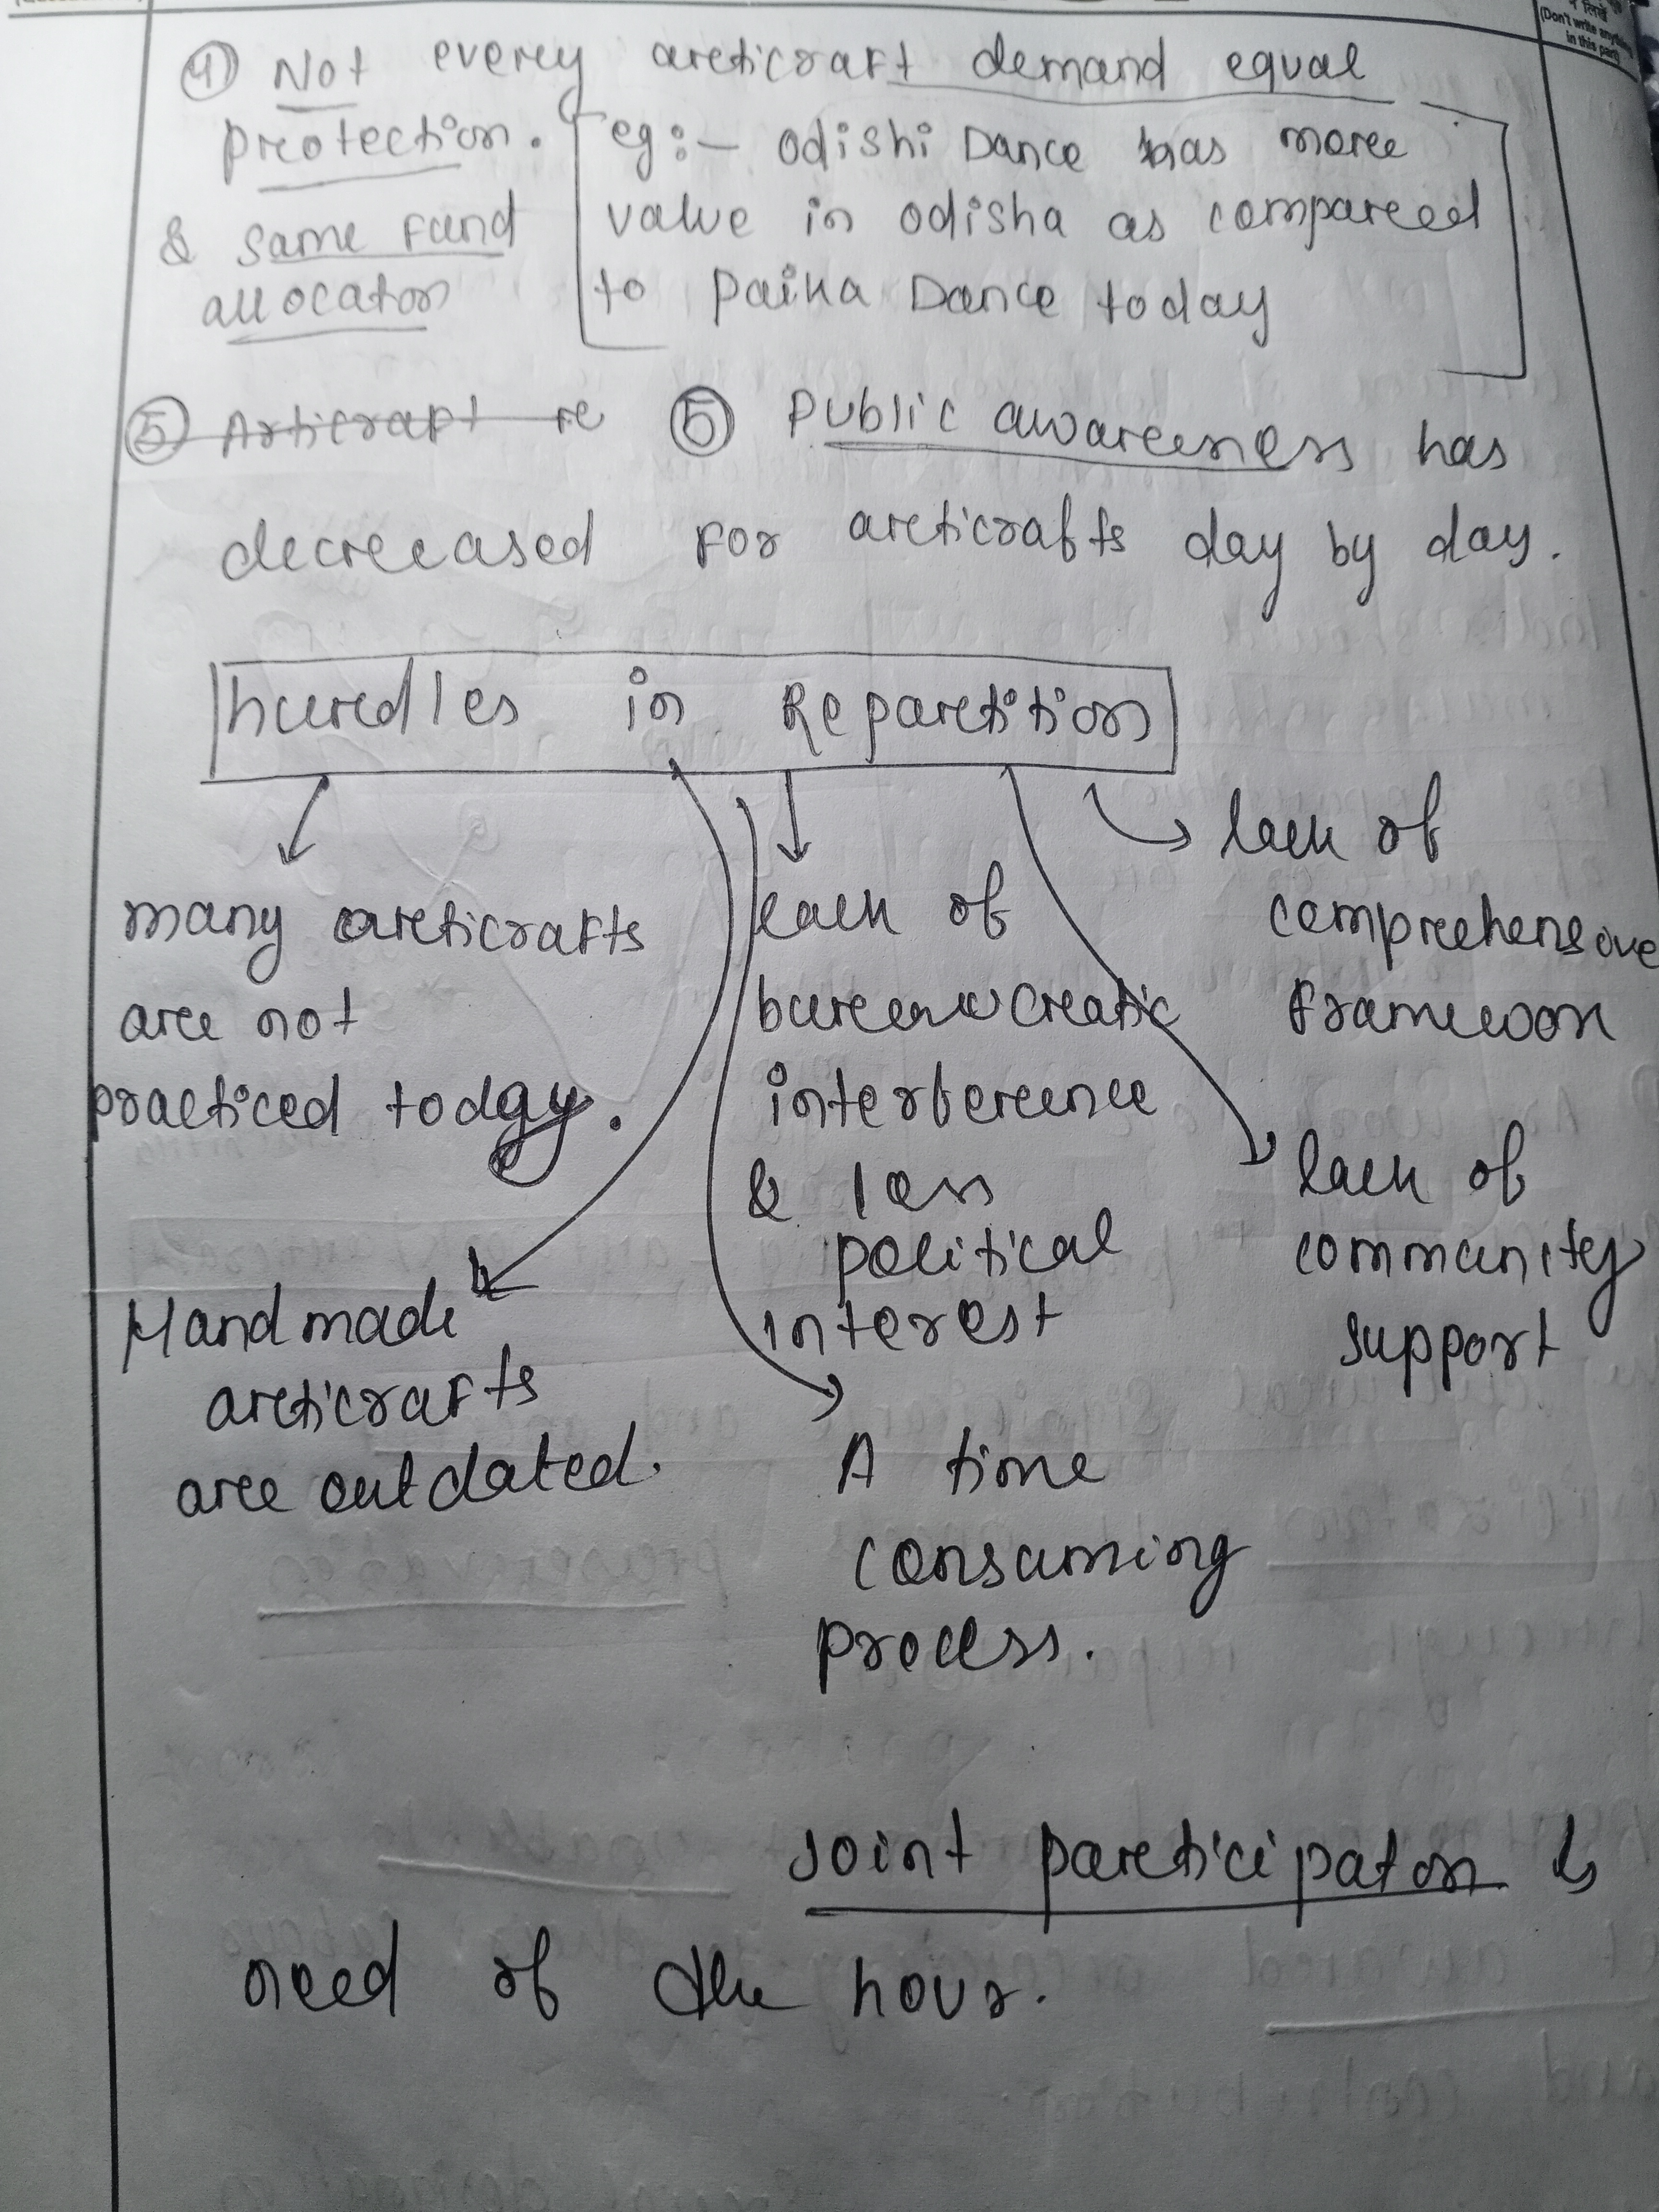 (Don't write anything
in this part)
④ Not every articraft demand equal
protection.
& same fund
allocaton
eg:- Odishi Dance has more
value in odisha as compared
to Paika Dance today
⑤ Articrapt re ⑤ Public awareness has
decreased for articrafts day by day.
hurdles in Repartition
many articrafts
are not
practiced today.
Handmade
articrafts
are outdated.
lack of
bureaucratic
interference
& less
political
interest
A time
consuming
process.
lack of
comprehensive
framework
lack of
community
support
Joint participaton is
need of the hour.